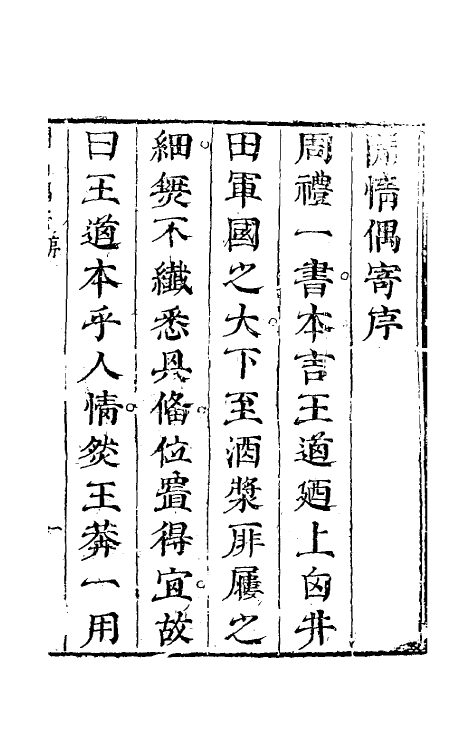 閒情偶寄序
周禮一書本言王道廼上自井
田軍國之大下至酒漿屝屨之
細無不纖悉具備位置得宜故
曰王道本乎人情然王莽一用